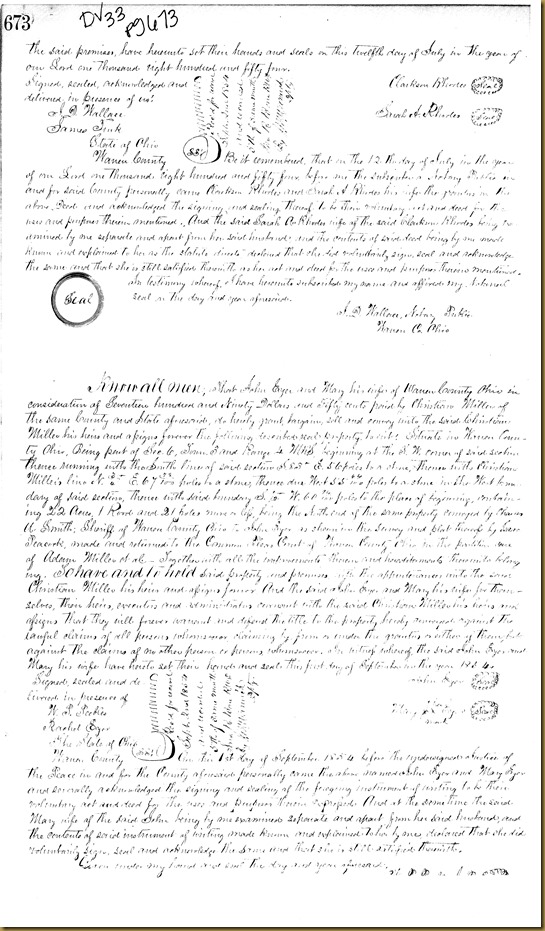 673
DV33
pg 673
the said premises, have hereunto set their hands and seals on this twelfth day of July in the year of
our Lord one thousand eight hundred and fifty four.
Signed, sealed, acknowledged and
delivered in presence of us.
Clarkson Rhodes Seal
J. D. Wallace
Sarah A. Rhodes Seal
James
State of Ohio
Warren County
Be it remembered, that on the 12th day of July in the year
of our Lord one thousand eight hundred and fifty four, before me the subscriber a Notary Public in
and for said County personally came Clarkson Rhodes and Sarah A Rhodes his wife the grantors in the
above Deed and acknowledged the signing and sealing thereof to be their voluntary act and deed for the
uses and purposes therein mentioned. And the said Sarah A. Rhodes wife of the said Clarkson Rhodes being ex-
amined by me separate and apart from her said husband and the contents of said deed being by me made
known and explained to her as the statute directs declared that she did voluntarily sign, seal and acknowledge
the same and that she is still satisfied therewith as her act and deed for the uses and purposes therein mentioned.
In testimony whereof, I have hereunto subscribed my name and affixed my Notarial
Seal
seal on the day and year aforesaid.
J. D Wallace, Notary Public
Warren Co. Ohio
Know all men, That John Eyer and Mary his wife of Warren County Ohio in
consideration of Seventeen hundred and Ninety Dollars and Fifty cents paid by Christian Miller of
the same County and State aforesaid, do hereby grant, bargain, sell and convey unto the said Christian
Miller his heirs and assigns forever the following described real property to wit: Situate in Warren Coun-
ty Ohio, Being part of Sec 6, Town 3 and Range 4 beginning at the S. W. corner of said section
thence running with the South line of said section S 85° E. poles to a stone, thence with Christian
Miller's line N. E. 67 poles to a stone, thence due West 55 poles to a stone in the West boun-
dary of said section, thence with said boundary S. W. 60 poles to the place of beginning, contain-
ing 22 Acres, 1 Rood and 21 poles more or less, being the end of the same property conveyed by Charles
A. Smith, Sheriff of Warren County, Ohio to John Eyer as shown in the survey and plat thereof by
Peacock, made and returned to the Common Pleas Court of Warren County Ohio in the partition case
of Adam Miller et al - Together with all the and hereditaments thereunto belong-
ing. To have and to hold said property and premises with the appurtenances unto the said
Christian Miller his heirs and assigns forever And the said John Eyer and Mary his wife for them-
selves, their heirs, executors and administrators covenant with the said Christian Miller his heirs and
assigns That they will forever warrant and defend the title to the property hereby conveyed against the
lawful claims of all persons whomsoever claiming by from or under the grantors or either of them, but
against the claims of no other person or persons whomsoever. In witness whereof, the said John Eyer and
Mary his wife have hereto set their hands and seals this first day of September in the year 1854.
Signed, sealed and de
livered in presence of
John Eyer Seal
W. P.
Mary Eyer Seal
mark
Rachel Eyer
The State of Ohio
Warren County
On the 1st day of September 1854 before the undersigned a Justice of
the Peace in and for the County aforesaid personally came the above named John Eyer and Mary Eyer
and severally acknowledged the signing and sealing of the foregoing instrument of writing to be their
voluntary act and deed for the uses and purposes therein expressed. And at the same time the said
Mary wife of the said John being by me examined separate and apart from her said husband, and
the contents of said instrument of writing made known and explained to her by me, declared that she did
voluntarily sign, seal and acknowledge the same and that she is still satisfied therewith.
Given under my hand and seal the day and year aforesaid.